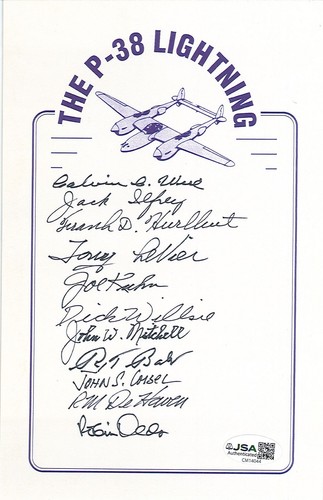 THE P-38 LIGHTNING
Calvin C. Wire
Jack Ilfrey
Frank D. Hurlbut
Tony LeVier
Joe Kuhn
Dick Willsie
John W. Mitchell
John S. Loisel
R M DeHaven
Robin Olds
JSA
Authenticated
CM14044